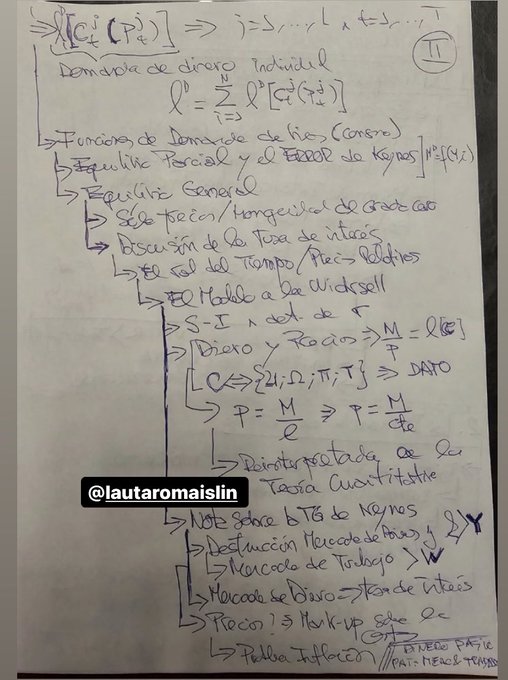 ⇒ l[C_t^j(P_t^j)] ⇒ j=1,...,L ∧ t=1,...,T
II
Demanda de dinero individual
l^D = Σ_{i=1}^N l^D[C_t^j(P_t^j)]
↳ Funciones de Demanda de bienes (Consumo)
↳ Equilibrio Parcial y el ERROR de Keynes] M^D=f(Y,i)
↳ Equilibrio General
↳ Sólo precios/Homogeneidad de Grado cero
↳ Discusión de la Tasa de interés
↳ El rol del Tiempo/Precios Relativos
↳ El Modelo a la Wicksell
↳ S-I ∧ det. de r
↳ Dinero y Precios ⇒ M/P = l[C]
C ⇔ {U; Ω; π; T} ⇒ DATO
↳ P = M/l ⇒ P = M/cte
↳ Reinterpretada de la
Teoría Cuantitativa
@lautaromaislin
↳ Nota sobre la TG de Keynes
↳ Destrucción Mercado de Bienes y
↳ Mercado de Trabajo > W
↳ Mercado de Dinero ⇒ tasa de interés
↳ Precios? ⇒ Mark-up sobre la
↳ Problema Inflación
DINERO PASIVO